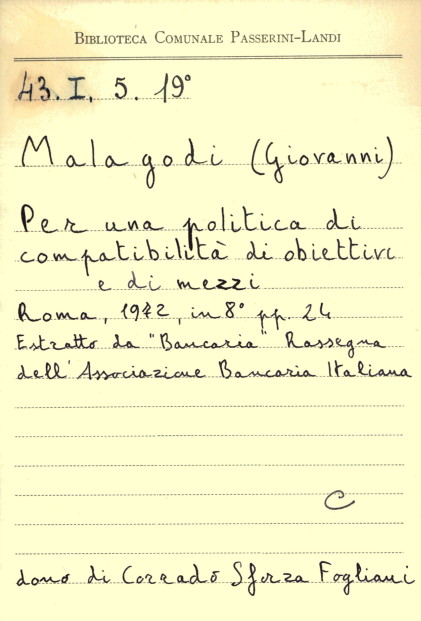 BIBLIOTECA COMUNALE PASSERINI-LANDI
43. I. 5. 19°
Malagodi (Giovanni)
Per una politica di
compatibilità di obiettivi
e di mezzi
Roma, 1972, in 8° pp. 24
Estratto da "Bancaria" Rassegna
dell'Associazione Bancaria Italiana
C
dono di Corrado Sforza Fogliani